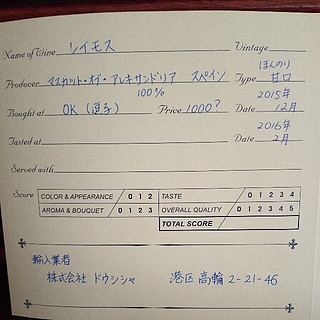 Name of Wine レイモス Vintage
Producer マスカット・オブ・アレキサンドリア スペイン Type ほんのり甘口
100%
Bought at OK (逗子) Price 1000? Date 2015年12月
Tasted at Date 2016年2月
Served with
Score COLOR & APPEARANCE 0 1 2 TASTE 0 1 2 3 4
AROMA & BOUQUET 0 1 2 3 OVERALL QUALITY 0 1 2 3 4 5
TOTAL SCORE
輸入業者
株式会社 ドウシシャ 港区高輪2-21-46